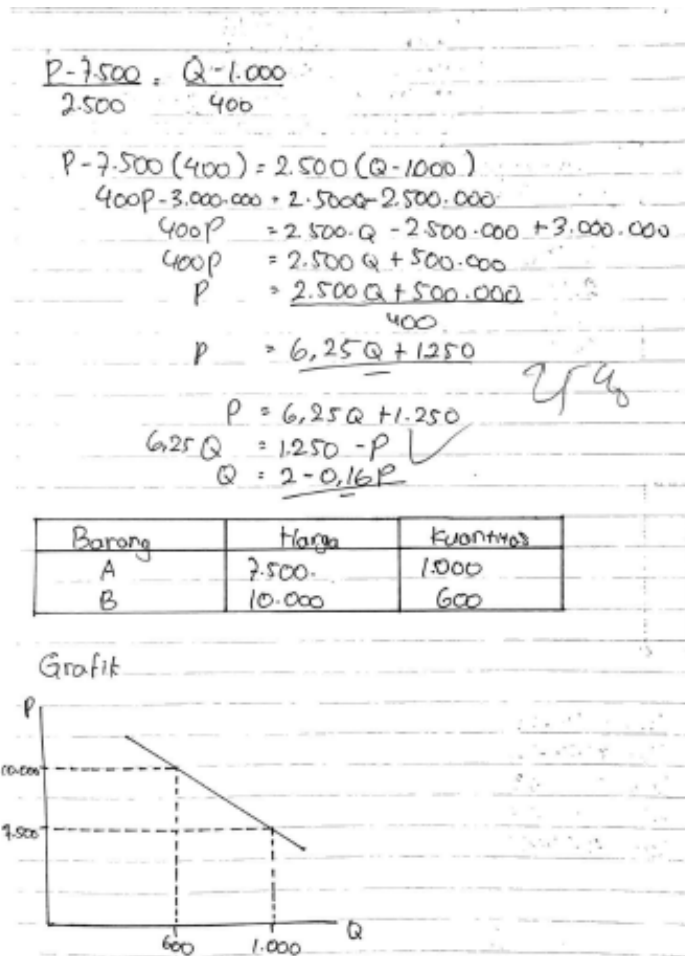 P-7.500 = Q-1.000
2.500 400
P-7.500 (400) = 2.500 (Q-1000)
400P-3.000.000 = 2.500Q-2.500.000
400P = 2.500.Q - 2.500.000 + 3.000.000
400P = 2.500 Q + 500.000
P = 2.500 Q + 500.000
400
P = 6,25 Q + 1250
P = 6,25 Q + 1.250
6,25 Q = 1.250 - P
Q = 2 - 0,16 P
Barang Harga Kuantitas
A 7.500. 1.000
B 10.000 600
Grafik
P
10.000
7.500
600 1.000 Q